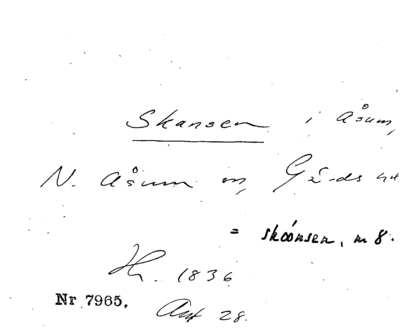 Skansen i Åsum,
N. Åsum sn, Gärds hd
= skóònsen, m 8.
1836
Nr 7965. Ant 28.